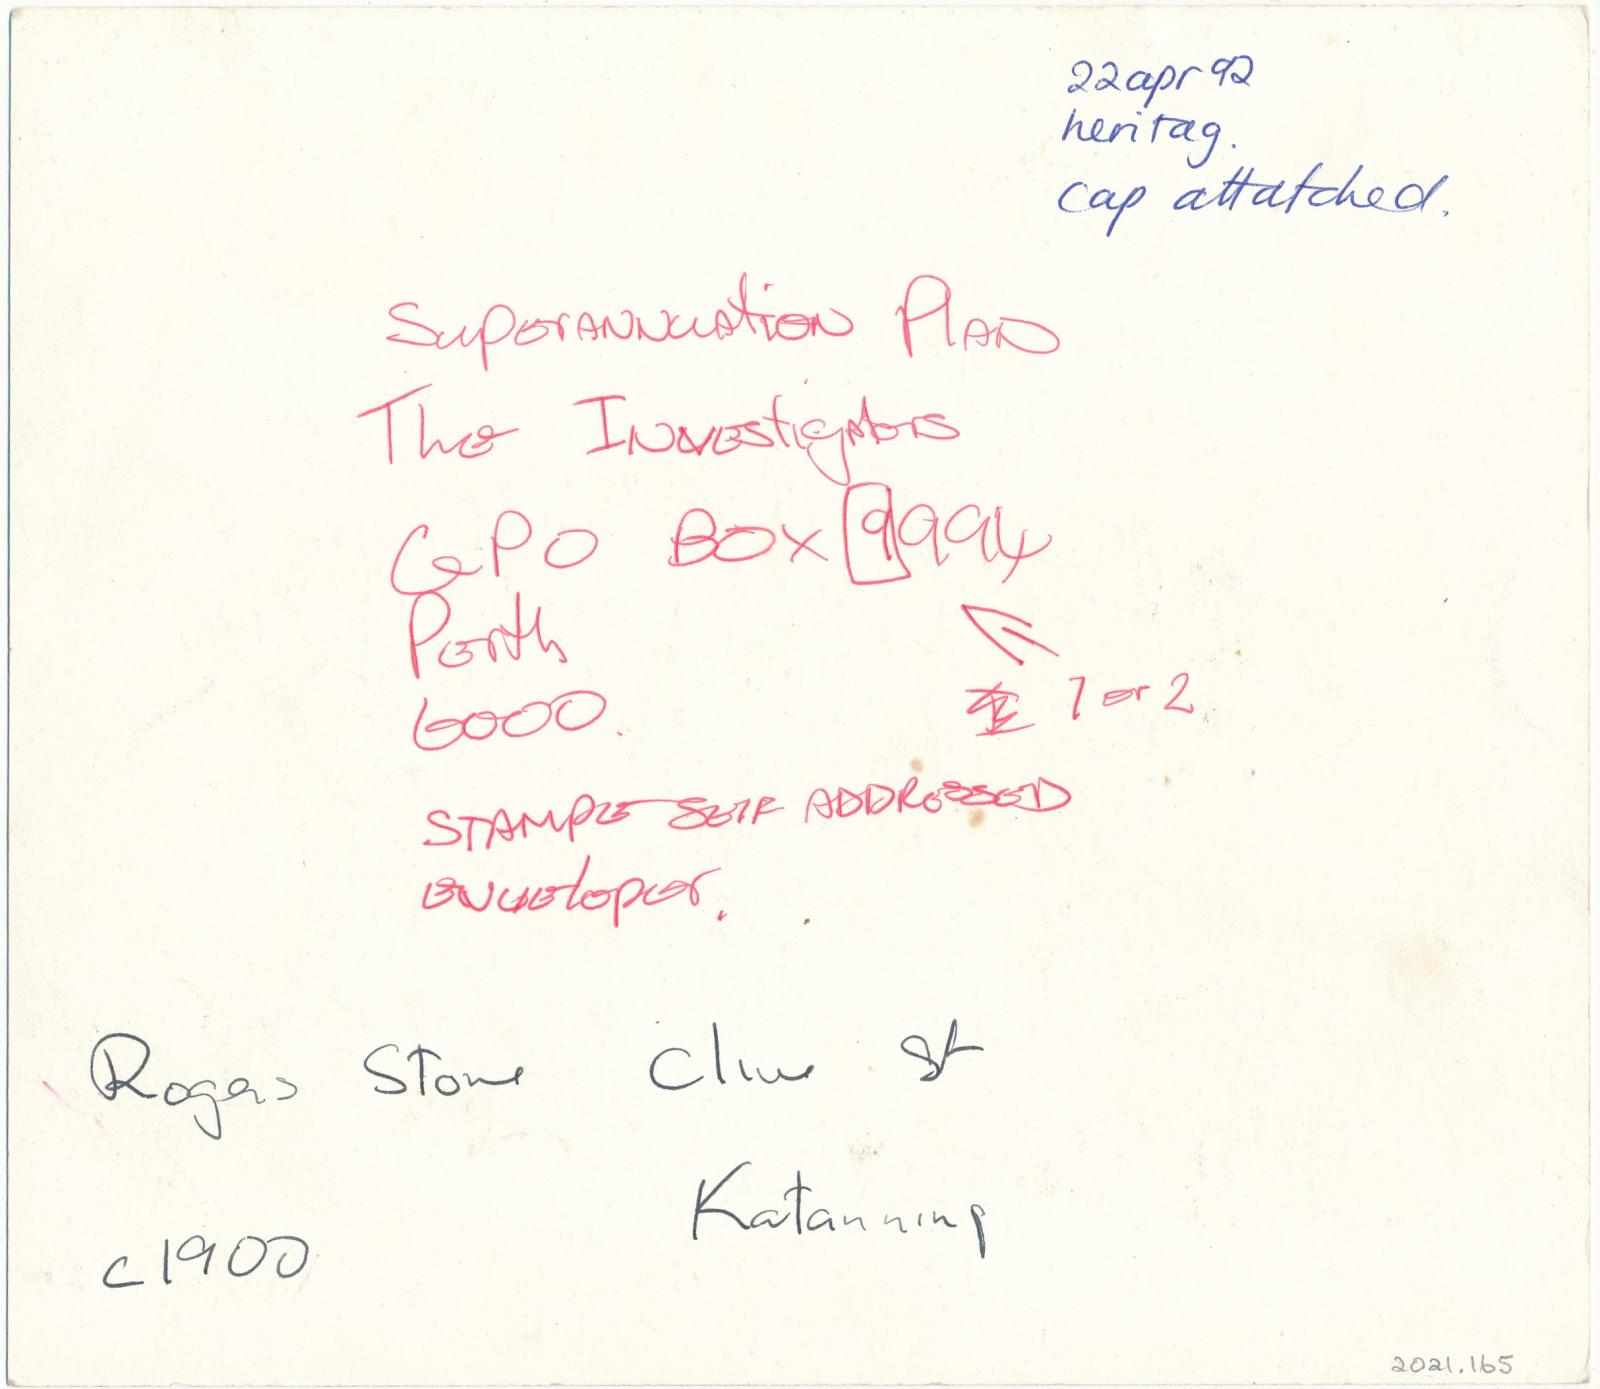 22 apr 92
heritag.
cap attatched.
Superannuation Plan
The Investigators
GPO BOX 9994
Perth
6000.
1 or 2
STAMPE SELF ADDRESSED
enveloper.
Rogers Store Clive St
Katanning
c1900
2021.165